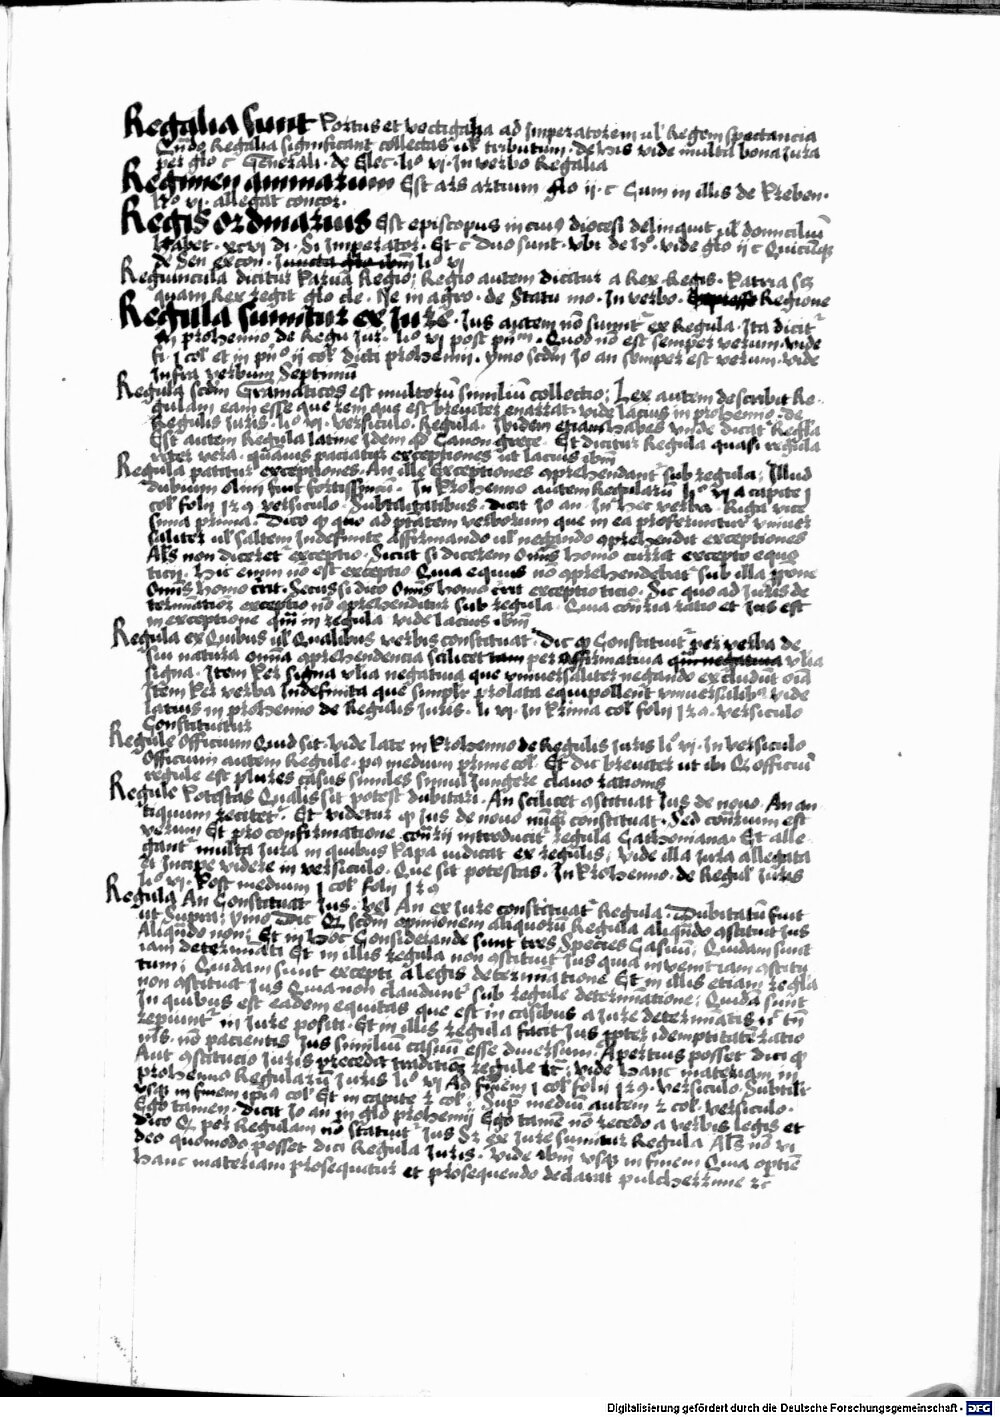 Regalia sunt Portus et vectigalia ad Imperatorem ul' Regem spectancia
Qñdo Regalia significant collectas ul' tributum · de his vide multa bona Jura
per glo c Generali · de Elec · li° vi · In verbo Regalia
Regimen animarum Est ars artium glo ij · c Cum in illis de Preben ·
li° vi · allegat concor ·
Regis ordinarius Est episcopus in cui9 diocesi delinquit ul' domiciliū
Habet · xcvi di · Si Imperator · Et c Duo sunt · vbi de h° · vide glo ij c Quicūq3
de Sen excon · li° vi
Reguincula dicitur Parua Regio; Regio autem dicitur a Rex Regis · Patria s3
quam Rex regit glo cle · Ne in agro · de Statu mo · In verbo · Regione
Regula sumitur ex Jure · Jus autem nō sumit̄ ex Regula · Ita dicit̄
in prohemio de Regu Jur · li° vi post pn̄m · Quod nō est semper verum · vide
fi · j col' et in pn° ij col' dicti prohemij · ymo scd̄m Jo an semper est verum · vide
Infra verbum Septimū
Regula scd̄m Gramaticos est multorū similiū collectio; Lex autem describit Re-
gulam eam esse que rem que est breuiter enarrat · vide lacius in prohemio · de
Regulis Juris · li° vi · versiculo · Regula · Ibidem etiam habes vnde dicat̄ Reg'la
Est autem Regula latine Idem qd Canon grece · Et dicitur Regula quasi regula
riter vera · quāuis paciatur exceptiones ut lacius ibm̄
Regula patitur exceptiones · An ille exceptiones 9prehendant̄ sub regula; Illud
dubium olim fuit fortissimū · In Prohemio autem Regularū li° vi a capite j
col' folij 1 2 9 versiculo · Subtiligatibus · dicit Jo an · In hec verba · Riga vice
sima prima · Dico q quo ad pr̄atem verborum que in ea proferuntur vniuer
saliter ul' saltem Indefinite affirmando ul' negando 9prehendit exceptiones
Al's non diceret̄ exceptio · Sicut si dicerem Om̄is homo currit excepto equo
ticij · Hic enim nō est exceptio Quia equus nō 9prehendebat̄ sub illa p̄pone
Om̄is homo c̄rit · Secus si dico Om̄is homo c̄rit excepto ticio · Sic quo ad Juris de
terminatiōz exceptio nō 9prehenditur sub regula · Quia con̄ria ratio et Jus est
in exceptione qm̄ in regula · vide lacius · ibm̄
Regula ex Quibus ul' Qualibus verbis constituat̄ · Dic q Constituit̄ per verba de
sui natura om̄ia 9prehendencia scilicet tam per affirmatiua quam negatiua vl'ia
signa · Item Per signa vl'ia negatiua que vniuersaliter negando excludūt oīa
Item Per verba Indefinita que simpl'r prolata equipollent vniuersalib9 vide
latius in prohemio de Regulis Juris · li vi · In Prima col' folij 1 2 9 · versiculo
Constituitur
Regule Officium Quid sit · vide late in Prohemio de Regulis Juris li° vi · In versiculo
Officium autem Regule · pa medium prime col' · Et dic breuiter ut ibi Q officiū
regule est plures casus similes simul Jungere clauo rationis
Regule Potestas Qualis sit potest dubitari · An scilicet 9stituat Jus de nouo · An an
tiquum recitet · Et videtur q Jus de nouo nunq̄ constituat · Sed con̄rium est
verum Et pro confirmatione con̄rij introducit̄ regula Cathoniana · Et alle
gant̄ multa Jura in quibus Papa iudicat ex regulis; vide illa Jura allegata
Et Incipe videre in versiculo · Que sit potestas · In Prohemio · de Regul' Juris
li° vi · Post medium j col' folij 1 2 9
Regula An Constituat Jus · vel An ex Jure constituat̄ Regula · Dubitatū fuit
ut Supra; ymo Dic Q scd̄m opinionem aliquorū Regula aliqn̄do 9stituit Jus
Aliqn̄do non; Et in hoc Considerande sunt tres Species Casuū; Quidam sunt
iam determinati Et in illis regula non 9stituit Jus quia inuenit iam 9stitu
tum; Quidam sunt excepti a legis determinatione Et in illis etiam reg'la
non 9stituit Jus Quia non claudunt̄ sub regule determinatione; Quidā sunt
In quibus est eadem equitas que est in casibus a Jure determinatis n̄ tn̄
repiunt̄ in Jure positi · Et in illis regula facit Jus p̄pter idemptitatē ratio
nis · nō pacientis Jus similiū casuū esse diuersum · Apertius posset dici q
Aut 9stitucio Juris precedit traditiōz regule tc̄; vide hanc materiam in
prohemio Regularū Juris li° vi Ad finem j col' folij 1 2 9 · versiculo Subtilit
vsq3 in finem ipi9 col' Et in capite 2 col'; Sup̄ mediū autem 2 col' versiculo ·
Ego tamen · dicit Jo an in glo prohemij Ego tamē nō recedo a verbis legis et
dico Q per Regulam nō statuit̄ Jus S3 ex Jure sumitur Regula Al's nō vi
deo quomodo posset dici Regula Juris · vide ibm̄ vsq3 in finem Quia optīe
hanc materiam prosequitur et prosequendo declarat pulcherrime 2c̄
Digitalisierung gefördert durch die Deutsche Forschungsgemeinschaft - DFG